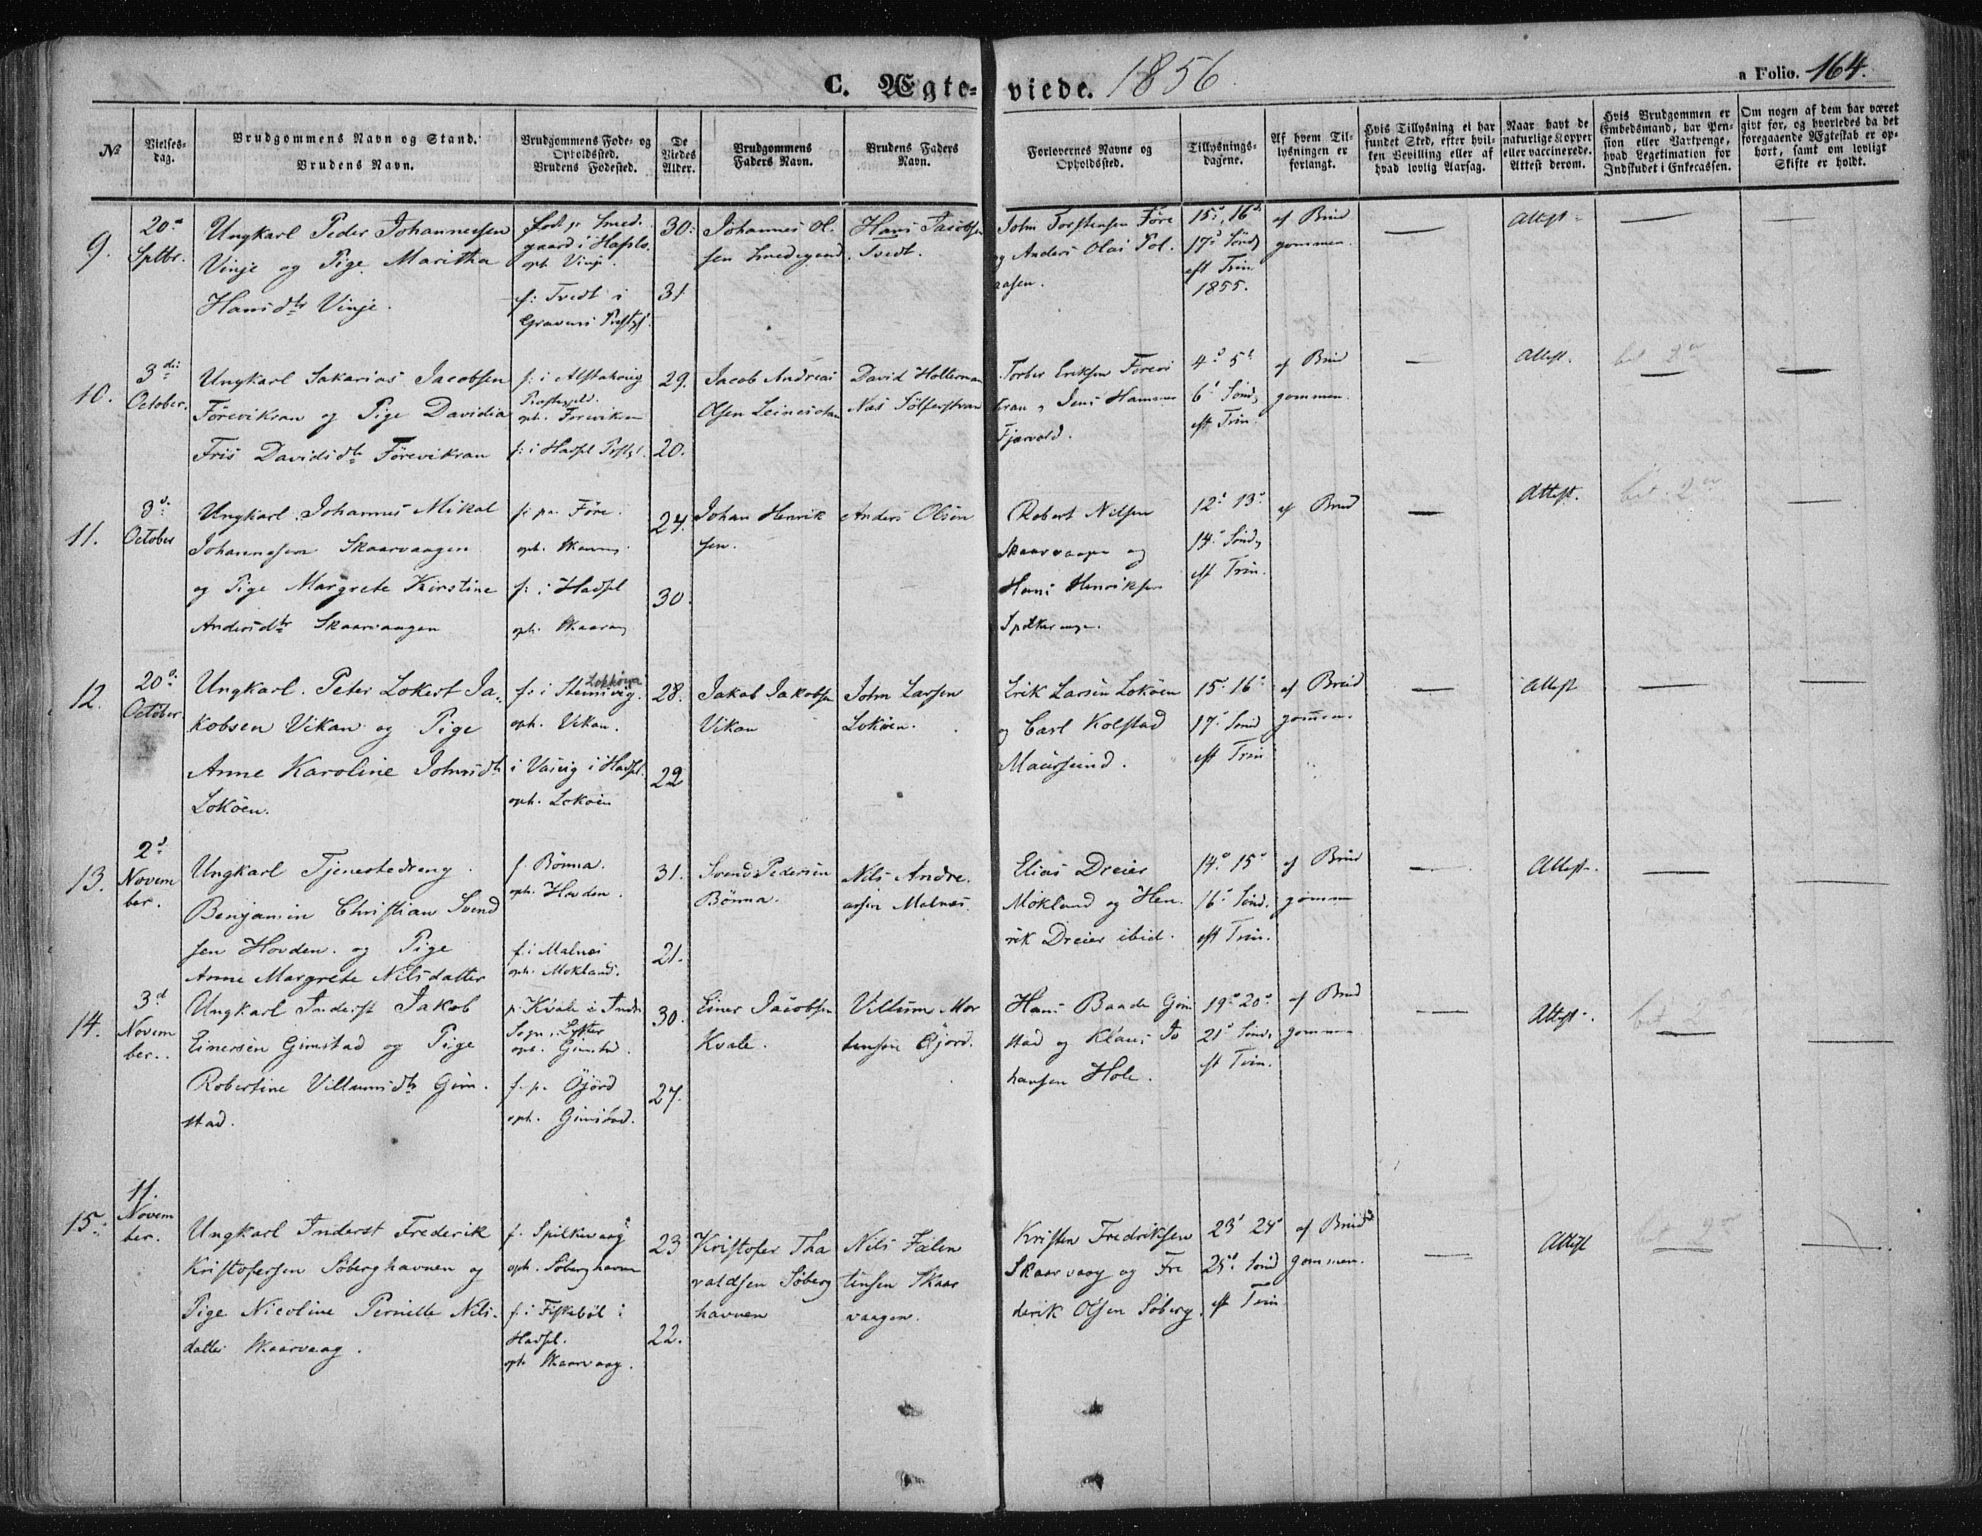 C. Ægteviede. 1856.
a Folio. 164.
№
Vielsesdag.
Brudgommens Navn og Stand.
Brudens Navn.
Brudgommens Føde- og Opholdssted.
Brudens Fødested.
De Viedes Alder.
Brudgommens Faders Navn.
Brudens Faders Navn.
Forlovernes Navne og Opholdssted.
Tillysningsdagene.
Af hvem Tillysningen er forlangt.
Hvis Tillysning ei har fundet Sted, efter hvilken Bevilling eller af hvad lovlig Aarsag.
Naar havt de naturlige Kopper eller vaccinerede. Attest derom.
Hvis Brudgommen er Embedsmand, har Pension eller Vartpenge, hvad Legetimation for Indskudet i Enkecassen.
Om nogen af dem har været gift før, og hvorledes da det foregaaende Ægteskab er ophørt, samt om lovligt Skifte er holdt.
9.
20de
Sptbr.
Ungkarl Peder Johannessen
Vinje og Pige Maritha
Hansdtr Vinje.
gaard i Hafslo.
oph. Vinje.
f: Tvedt i
30.
31
Johannes Ol
sen Smedegaard.
Hans Jacobsen
Tvedt.
John Torstensen Føre
og Anders Olai Pol.
aasen.
15d, 16d
17d Sønd
eft Trin
1855.
af Brud
gommen.
Attest
10.
3die
October.
Ungkarl Sakarias Jacobsen
Førevikran og Pige Davidia
Fris Davidsdtr Førevikran
f: i Alstahoug
Prestegjeld.
oph. Føreviken
f: i Hadsel Prstgl.
29.
20.
Jacob Andreas
Olsen
David Holterman
Næs
Torber EriksenFørevi
kran, Jens Hammer
Fjærvold.
4d 5d
6d Sønd
eft Trin.
af Brud
gommen.
Attest.
bet. 2
11.
3d
October
Ungkarl Johannes Mikal
Johannesen Skaarvaagen
og Pige Margrete Kirstine
Andersdtr Skaarvaagen
f: pa Føre.
f: i Hadsel
24.
30.
Johan Henrik
sen.
Anders Olsen
Robert Nilsen
Skaarvaagen og
Hans Henriksen
12d 13d
14d Sønd
eft Trin.
af Brud
Attest.
bet. 2
12.
20d
October
Ungkarl. Peter Lokert Ja-
kobsen Vikan og Pige
Anne Karoline Johnsdtr
Lokøen.
oph. Vikan.
i Hadsel.
oph. Lokøen
28.
22
Jakob Jakobsen
Vikan
John Larsen
Lokøen.
Erik Larsen Lokøen
og Carl Kolstad
Maursund.
15d 16d
17d Sønd
eft Trin
af Brud
gommen.
Attest
13.
2d
Novem
ber.
Ungkarl Tjenestedreng
Benjamin Christian Svend
sen Hovden. og Pige
Anne Margrete Nilsdatter
f. Bønna.
oph. Hovden.
f: i Malnæs
oph. Mokland.
31.
21.
Svend Pedersen
Bønna.
Nils Andre.
assen Malnæs.
Elias Dreier
Mokland og Hen.
rik Dreier ibid.
14d 15d
16d Sønd.
eft Trin.
af Brud
gommen
Attest.
14.
3d
Novem
ber.
Ungkarl Inderst Jakob
Einersen Gimstad og Pige
Robertine Villumsdtr Gim.
stad.
oph. Gimstad.
f. pa Øjord
oph. Gimstad.
30.
27.
Einer Jacobsen
Kvale.
Villum Mor
tensen Øjord.
Hans Baade Gim
stad og Klaus Jo
hansen Hole.
19d 20d
21d Sønd
eft Trin.
af Brud
gommen
Attest.
15.
11.
Novem
ber.
Ungkarl Inderst Frederik
Kristofersen Søberghavnen og
Pige Nicoline Pernille Nils.
datter Skaarvaag.
f. Spilkevaag
oph. Søberghavn
f: i Fiskebøl i
Hadsel.
oph. Skaarvaag.
23
22.
Kristofer Tha
valdsen Søberg
havnen
Nils Falen
tinsen Skaar
vaagen.
Kristen Fredriksen
Skaarvaag og Fre
derik Olsen Søberg.
23d 24d
25d Sønd
eft Trin
af Brud
gommen.
Attest
bet 2